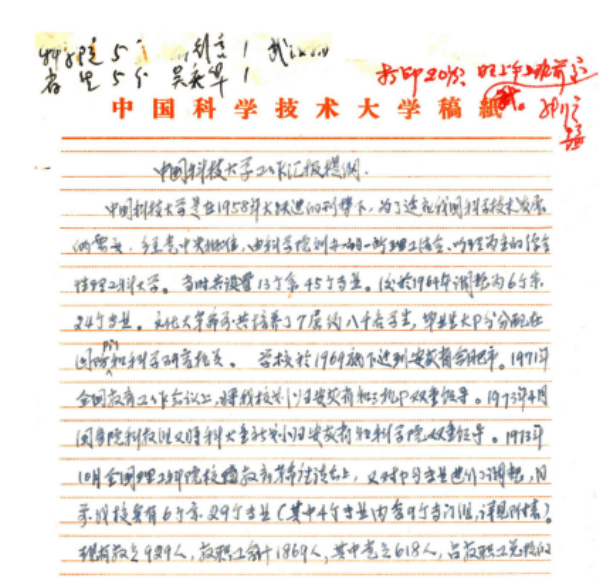 科学院 5个
省里 5个
打印20份
中国科学技术大学稿紙
中国科技大学工作汇报提纲.
中国科技大学是在1958年大跃进的形势下、为了适应我国科学技术发展
的需要，经党中央批准，由科学院创办的一所理工结合、以理为主的综合
性理工科大学。当时共设置13个系45个专业。後於1964年调整为6个系
24个专业。文化大革命前共培养了7届约八千名学生，毕业生大部分分配在
国防和科学研究机关。学校於1969年底下迁到安徽省合肥市。1971年
全国教育工作会议上，将我校划归安徽省和三机部双重领导。1973年4月
国务院科教组又将科大重新划归安徽省和科学院双重领导。1973年
10月全国理工科院校教育革命座谈会上，又对部分专业进行了调整，目
前我校共有6个系29个专业（其中4个专业内含9个专门组，详见附表）
现有教工929人，教职工合计1869人，其中党员618人，占教职工总数的